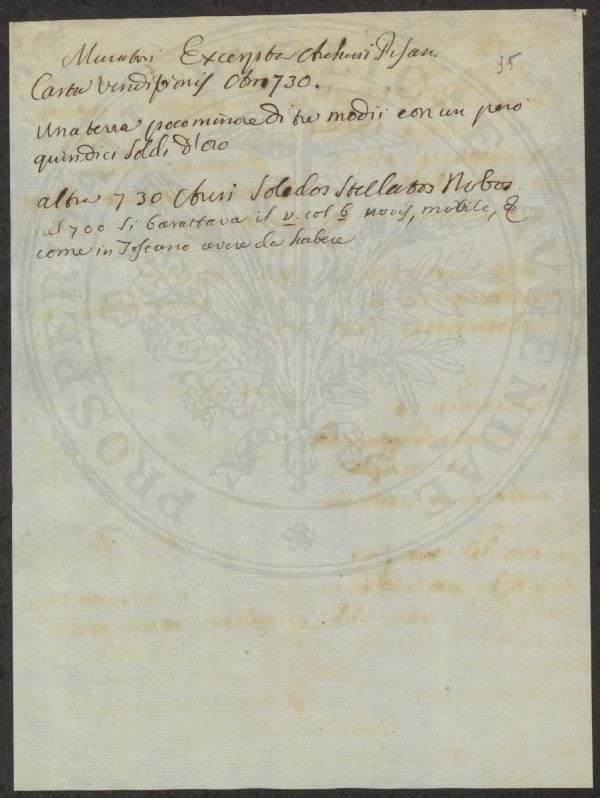 Muratori Excerpta Archivi Pisan.
35
Carta Venditionis 730.
Una terra poco minore di tre modii con un pero
quindici Soldi d'oro
altra 730 Auri Soledos Stellatos Nobos.
nel 700 si barattava il v. col b novis, mobile, &
come in Toscano avere da habere.
PROSPER AUGENDAE